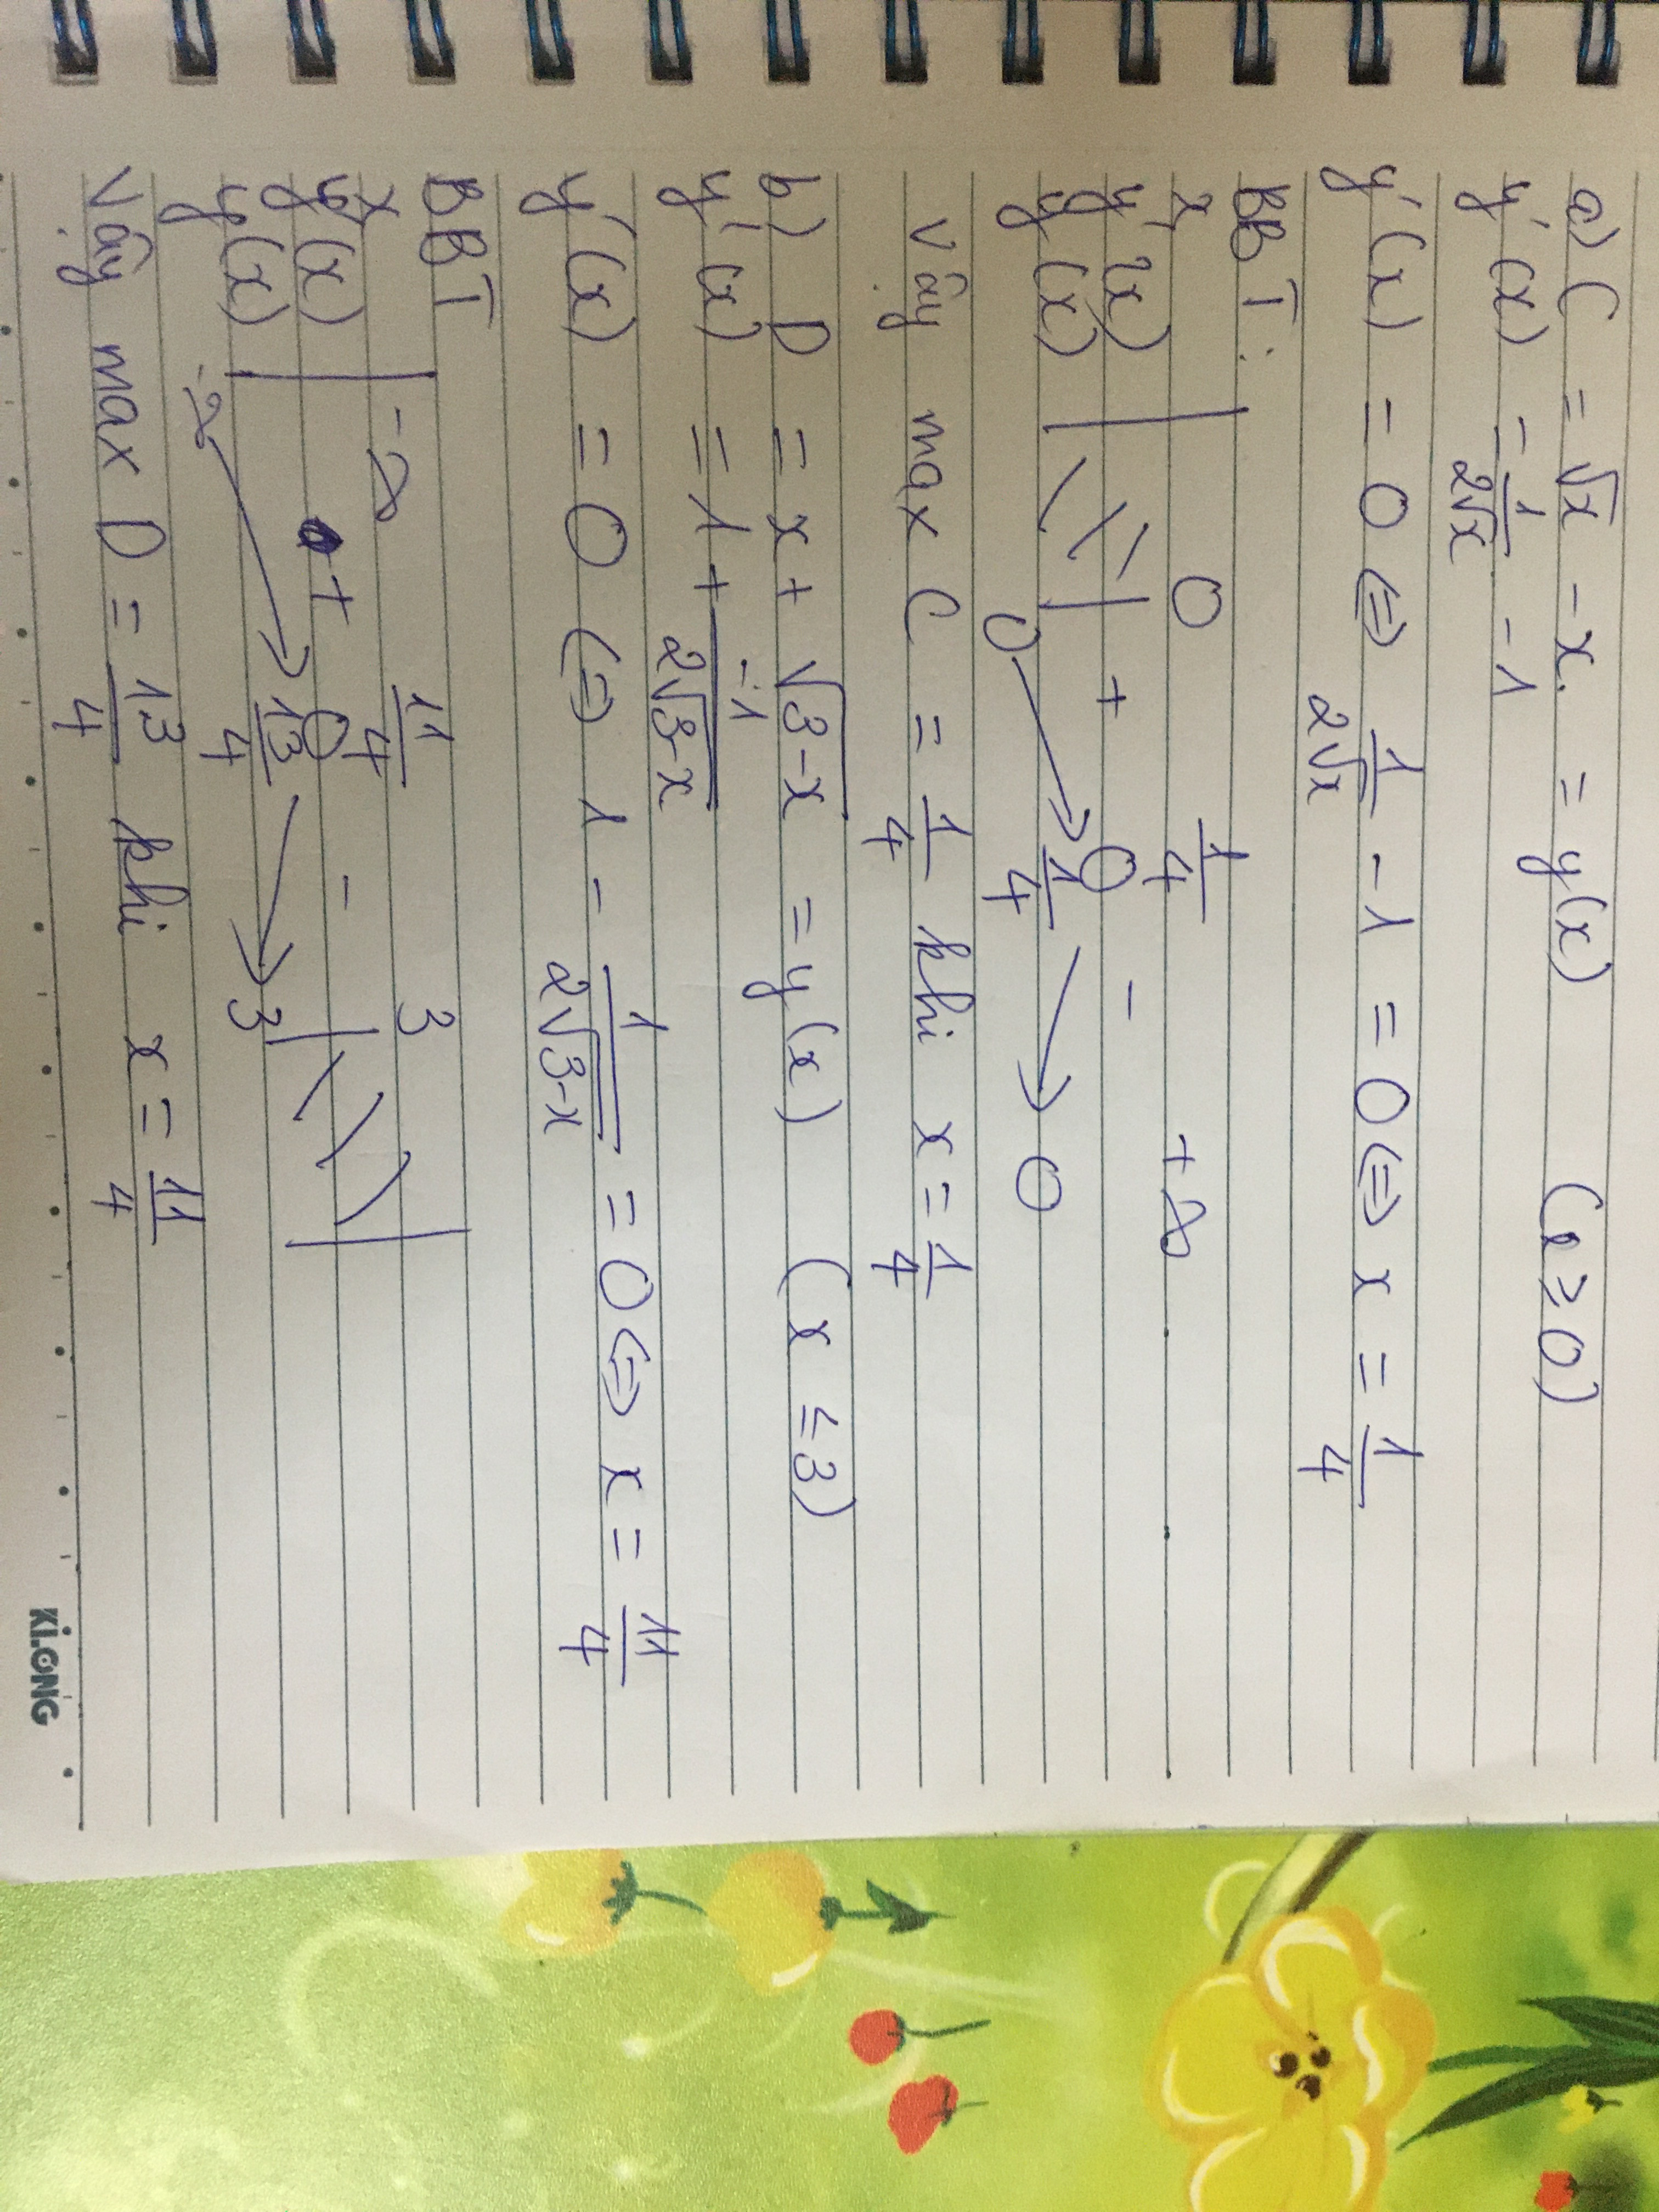 a) C = √x - x. = y(x) (x ≥ 0)
y'(x) = 1/(2√x) - 1
y'(x) = 0 ⇔ 1/(2√x) - 1 = 0 ⇔ x = 1/4
BBT:
x 0 1/4 +∞
y'(x) + 0 -
y(x) 0 1/4 0
Vậy max C = 1/4 khi x = 1/4
b) D = x + √(3-x) = y(x) (x ≤ 3)
y'(x) = 1 + -1/(2√(3-x))
y'(x) = 0 ⇔ 1 - 1/(2√(3-x)) = 0 ⇔ x = 11/4
BBT
x -∞ 11/4 3
y'(x) + 0 -
y(x) -∞ 13/4 3
Vậy max D = 13/4 khi x = 11/4
KLONG